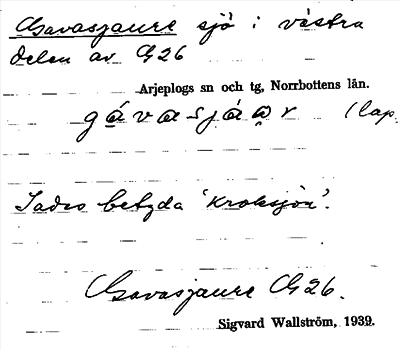 Gavasjaure sjö i västra
delen av G26
Arjeplogs sn och tg, Norrbottens län.
gávasjáạr (lap.
Sades betyda 'kroksjön'.
Gavasjaure G26.
Sigvard Wallström, 1939.